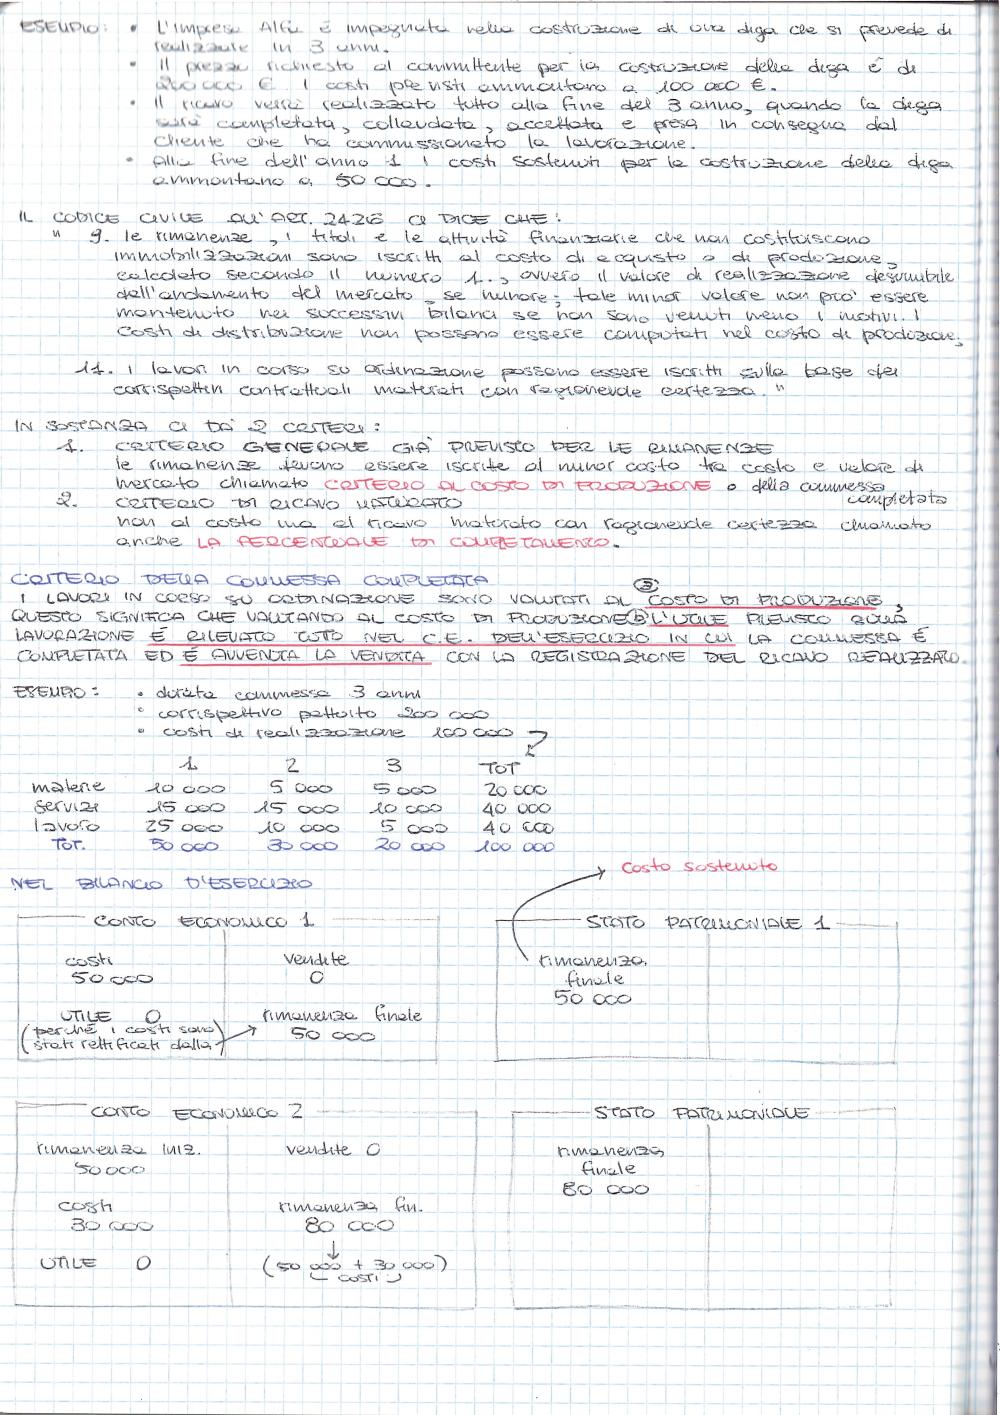 ESEMPIO: • L'impresa Alfa è impegnata nella costruzione di una diga che si prevede di
realizzare in 3 anni.
• Il prezzo richiesto al committente per la costruzione della diga è di
200 000 €. I costi previsti ammontano a 100 000 €.
• Il ricavo verrà realizzato tutto alla fine del 3 anno, quando la diga
sarà completata, collaudata, accettata e presa in consegna dal
cliente che ha commissionato la lavorazione.
• Alla fine dell'anno 1 i costi sostenuti per la costruzione della diga
ammontano a 50 000.
IL CODICE CIVILE ALL'ART. 2426 CI DICE CHE:
" 9. le rimanenze, i titoli e le attività finanziarie che non costituiscono
immobilizzazioni sono iscritti al costo di acquisto o di produzione,
calcolato secondo il numero 1., ovvero il valore di realizzazione desumibile
dall'andamento del mercato, se minore; tale minor valore non può essere
mantenuto nei successivi bilanci se non sono venuti meno i motivi. I
costi di distribuzione non possono essere computati nel costo di produzione;
11. i lavori in corso su ordinazione possono essere iscritti sulla base dei
corrispettivi contrattuali maturati con ragionevole certezza. "
IN SOSTANZA CI DÀ 2 CRITERI:
1. CRITERIO GENERALE GIÀ PREVISTO PER LE RIMANENZE
le rimanenze devono essere iscritte al minor costo tra costo e valore di
mercato chiamato CRITERIO AL COSTO DI PRODUZIONE o della commessa
completata
2. CRITERIO DI RICAVO MATURATO
non al costo ma al ricavo maturato con ragionevole certezza chiamato
anche LA PERCENTUALE DI COMPLETAMENTO.
CRITERIO DELLA COMMESSA COMPLETATA
I LAVORI IN CORSO SU ORDINAZIONE SONO VALUTATI AL COSTO DI PRODUZIONE,
QUESTO SIGNIFICA CHE VALUTANDO AL COSTO DI PRODUZIONE L'UTILE PREVISTO SULLA
LAVORAZIONE È RILEVATO TUTTO NEL C.E. DELL'ESERCIZIO IN CUI LA COMMESSA È
COMPLETATA ED È AVVENUTA LA VENDITA CON LA REGISTRAZIONE DEL RICAVO REALIZZATO.
ESEMPIO: • durata commessa 3 anni
• corrispettivo pattuito 200 000
• costi di realizzazione 100 000
1 2 3 TOT
materie 10 000 5 000 5 000 20 000
servizi 15 000 15 000 10 000 40 000
lavoro 25 000 10 000 5 000 40 000
TOT. 50 000 30 000 20 000 100 000
costo sostenuto
NEL BILANCIO D'ESERCIZIO
CONTO ECONOMICO 1 STATO PATRIMONIALE 1
costi vendite rimanenza
50 000 0 finale
50 000
UTILE 0 rimanenza finale
(perché i costi sono 50 000
stati rettificati dalla)
CONTO ECONOMICO 2 STATO PATRIMONIALE
rimanenza iniz. vendite 0 rimanenza
50 000 finale
80 000
costi rimanenza fin.
30 000 80 000
↓
UTILE 0 (50 000 + 30 000)
costi